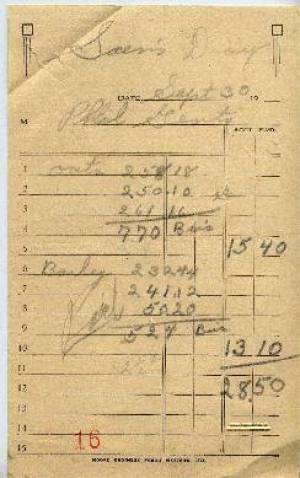 Soen's Dray
DATE Sept 30 19
M Phil Gentz
ACCT. FWD.
1 oats 258 18
2 250 10
3 261 16
4 770 Bus
5 15 40
6 Barley 232 44
7 241 12
8 50 20
9 524 Bus
10 13 10
11
12 28.50
13
14
15
16
MOORE BUSINESS FORMS